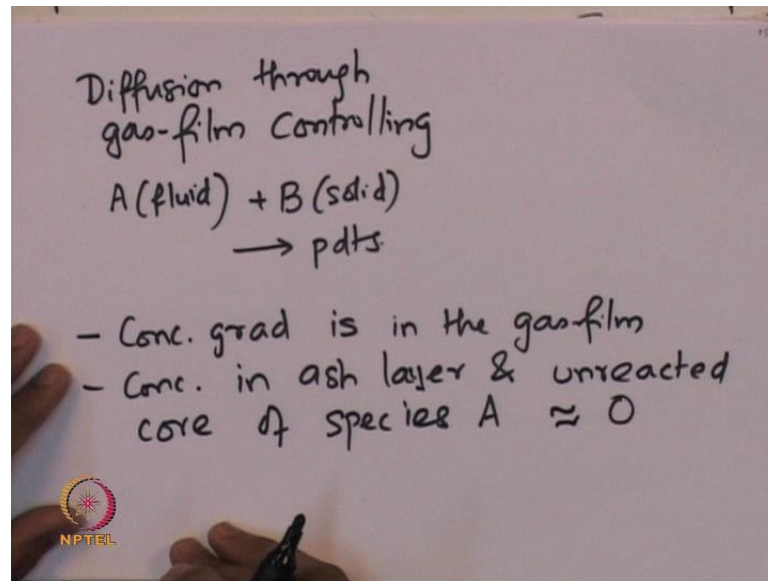 Diffusion through
gas-film Controlling
A (fluid) + B (solid)
→ pdts.
- Conc. grad is in the gas-film
- Conc. in ash layer & unreacted
core of species A ≈ 0
NPTEL